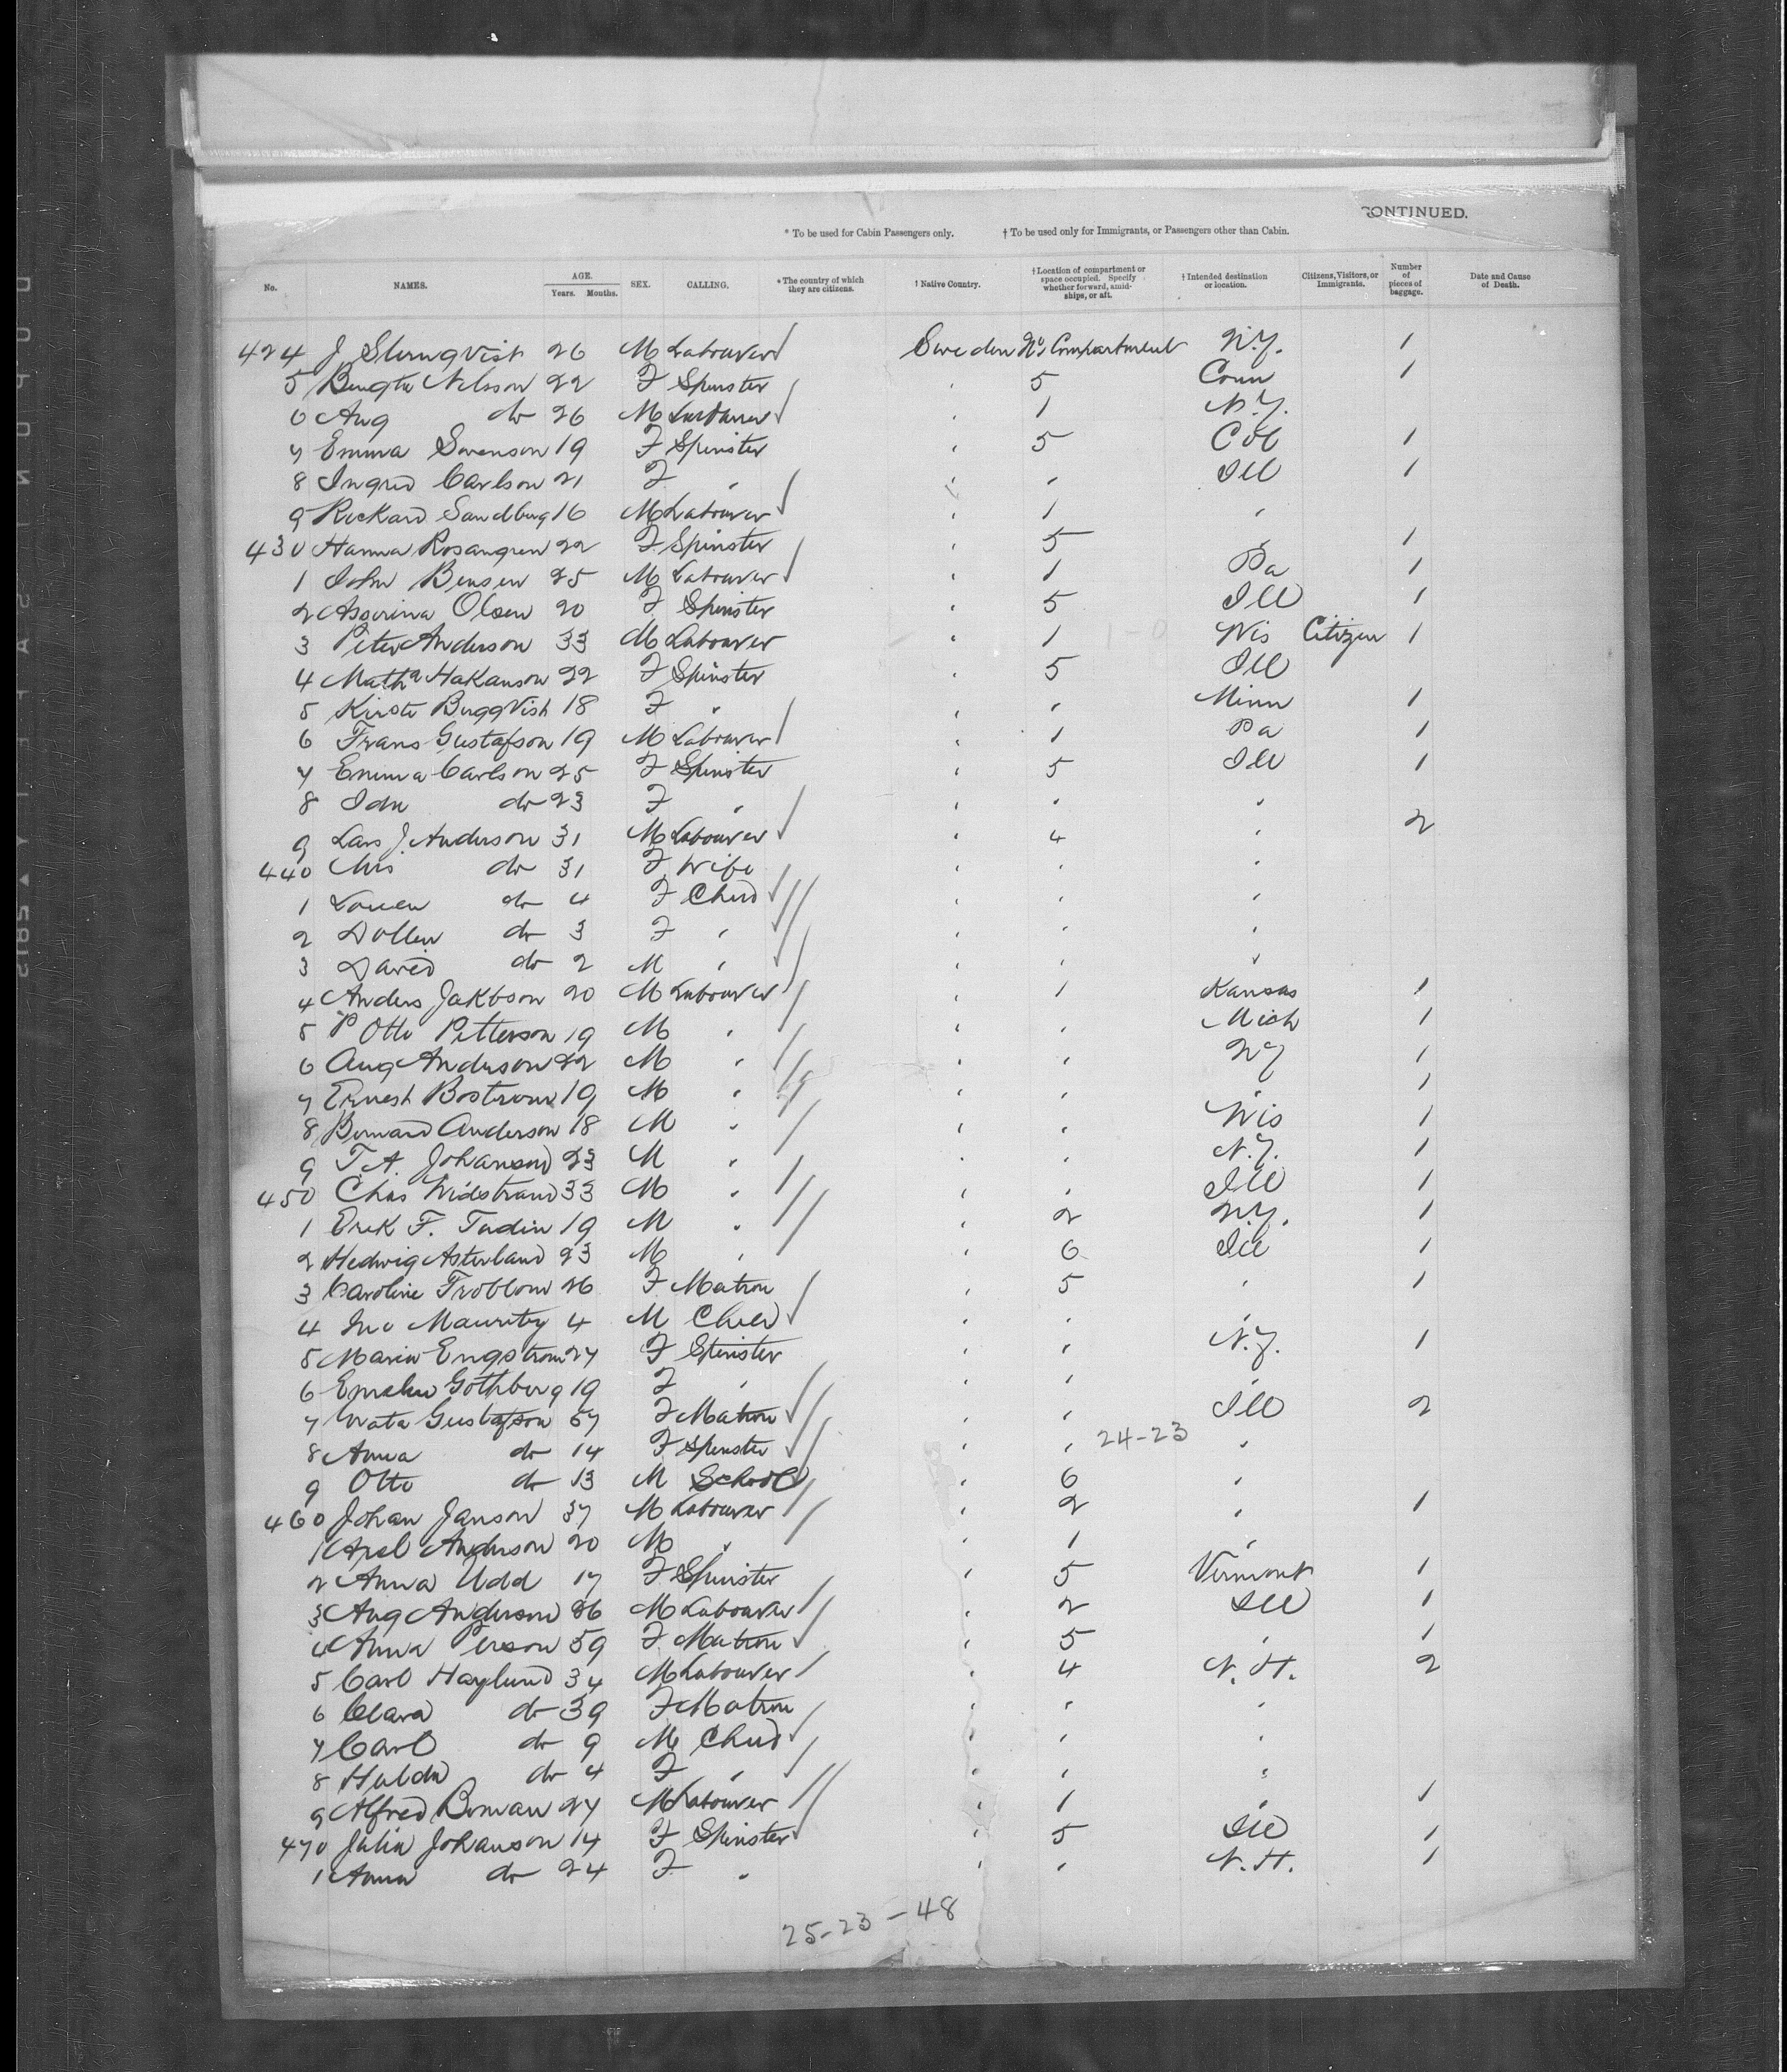 CONTINUED.
* To be used for Cabin Passengers only. † To be used only for Immigrants, or Passengers other than Cabin.
No. NAMES. AGE. Years. Months. SEX. CALLING. * The country of which they are citizens. † Native Country. † Location of compartment or space occupied. Specify whether forward, amidships, or aft. † Intended destination or location. Citizens, Visitors, or Immigrants. Number of pieces of baggage. Date and Cause of Death.
424 J Sternqvist 26 M Labourer Sweden No 1 Compartment N.Y. 1
5 Bengta Nilsson 22 F Spinster " 5 Conn 1
6 Aug do 26 M Labourer " 1 N.Y.
7 Emma Svenson 19 F Spinster " 5 Col 1
8 Ingrid Carlson 21 F " " " Ill 1
9 Rickard Sandberg 16 M Labourer " 1 "
430 Hanna Rosangren 22 F Spinster " 5 " 1
1 John Bensen 25 M Labourer " 1 Pa 1
2 Olsen 20 F Spinster " 5 Ill 1
3 Peter Anderson 33 M Labourer " 1 Wis Citizen 1
4 Matha Hakanson 22 F Spinster " 5 Ill
5 Kirste BuggVist 18 F " " " Minn 1
6 Frans Gustafson 19 M Labourer " 1 Pa 1
7 Emma Carlson 25 F Spinster " 5 Ill 1
8 Ida do 23 F " " " "
9 Lars J. Anderson 31 M Labourer " 4 " 2
440 Mrs do 31 F Wife " " "
1 do 4 F Child " " "
2 do 3 F " " " "
3 David do 2 M " " " "
4 Anders Jakbson 20 M Labourer " 1 Kansas 1
5 P Otto Petterson 19 M " " " Mich 1
6 Aug Anderson 22 M " " " NY 1
7 Ernest Bostrom 19 M " " " " 1
8 Bernard Anderson 18 M " " " Wis 1
9 T.A. Johanson 23 M " " " N.Y. 1
450 Chas Widstrand 33 M " " " Ill 1
1 Erek F. Tudin 19 M " " 2 N.Y. 1
2 Hedwig Asterland 23 M " " 6 Ill 1
3 Caroline Froblom 26 F Matron " 5 " 1
4 Mauritz 4 M Child " " "
5 Maria Engstrom 27 F Spinster " " N.Y. 1
6 Gothberg 19 F " " " "
7 Gustafson 57 F Matron " " Ill 2
8 Anna do 14 F Spinster " " 24-23 "
9 Otto do 13 M School " 6 "
460 Johan Janson 37 M Labourer " 2 " 1
1 Axel Anderson 20 M " " 1 "
2 Anna Udd 17 F Spinster " 5 Vermont 1
3 Aug Anderson 26 M Labourer " 2 Ill 1
4 Anna Person 59 F Matron " 5 " 1
5 Carl Haylund 34 M Labourer " 4 N.H. 2
6 Clara do 39 F Matron " " "
7 Carl do 9 M Child " " "
8 Hulda do 4 F " " " "
9 Alfred Boman 27 M Labourer " 1 " 1
470 Julia Johanson 14 F Spinster " 5 Ill 1
1 Anna do 24 F " " " N.H. 1
25-23-48